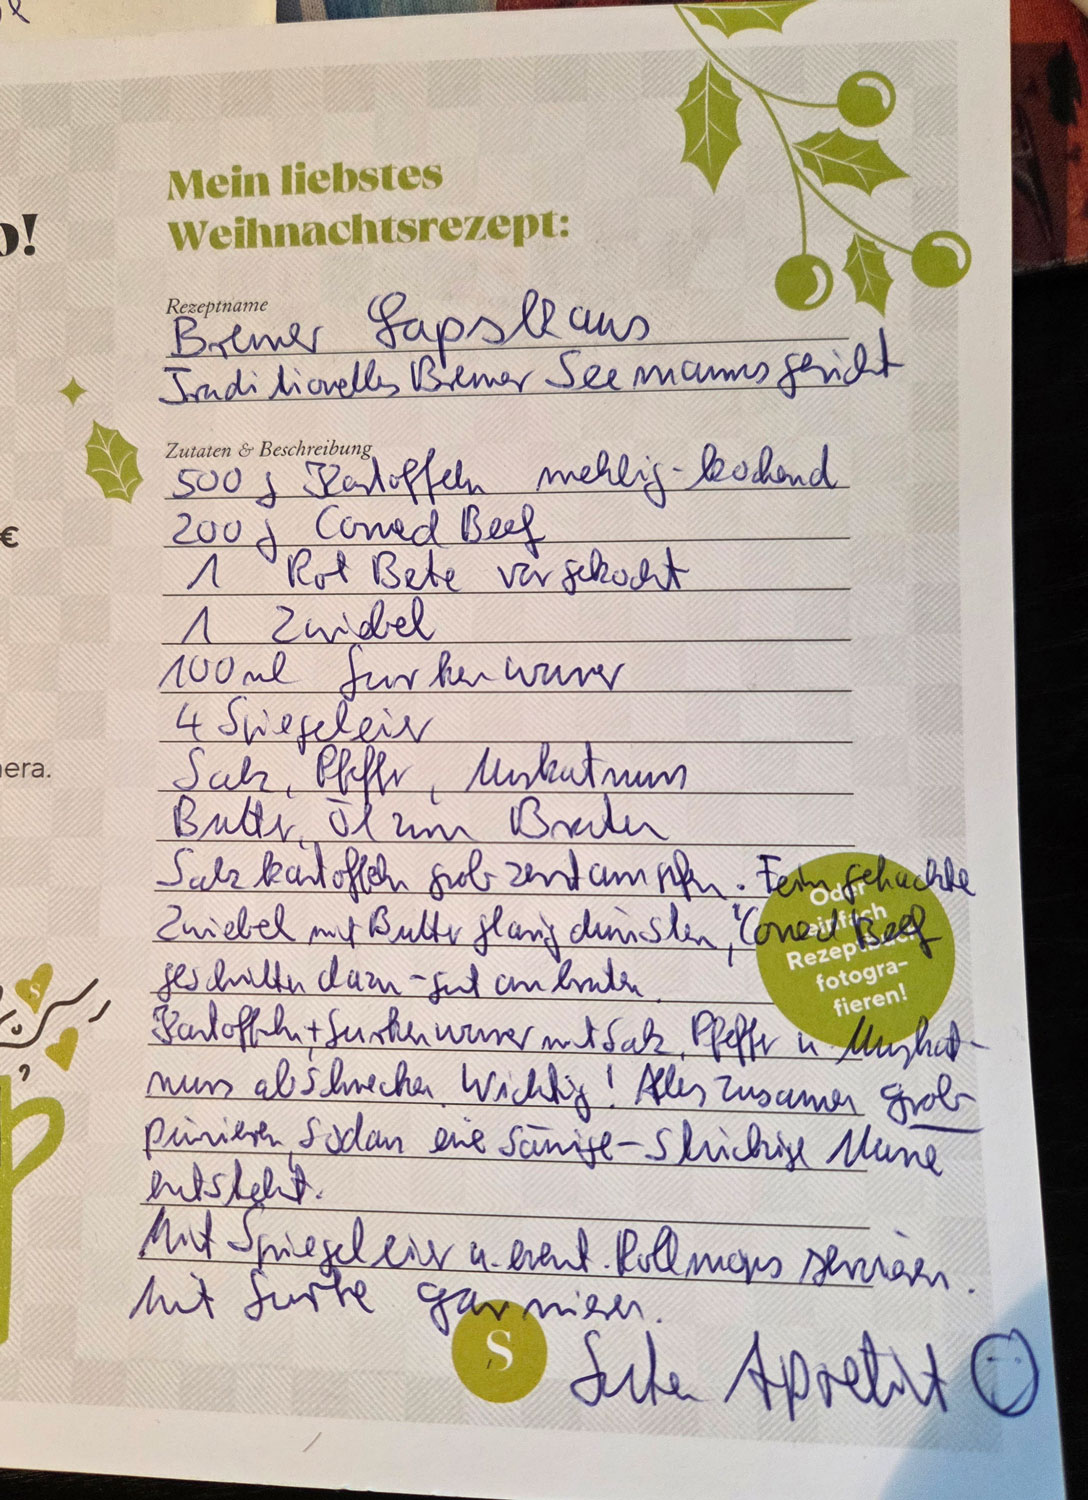 o!
€
nera.
Mein liebstes
Weihnachtsrezept:
Rezeptname
Bremer Lapskaus
Traditionelles Bremer Seemannsgericht
Zutaten & Beschreibung
500 g Kartoffeln mehlig-kochend
200 g Corned Beef
1 Rot Bete vorgekocht
1 Zwiebel
100 ml Gurkenwasser
4 Spiegeleier
Salz, Pfeffer, Muskatnuss
Butter, Öl zum Braten
Salzkartoffeln grob zerstampfen. Fein gehackte
Zwiebel mit Butter glasig dünsten, Corned Beef
geschnitten dazu - gut anbraten.
Kartoffeln + Gurkenwasser mit Salz, Pfeffer u Muskat-
nuss abschmecken. Wichtig! Alles zusammen grob
pürieren, sodass eine sämige-stückige Masse
entsteht.
Mit Spiegeleier u. event. Rollmops servieren.
Mit Gurke garnieren.
Guten Appetit
Oder
einfach
Rezept
fotogra-
fieren!
S
S